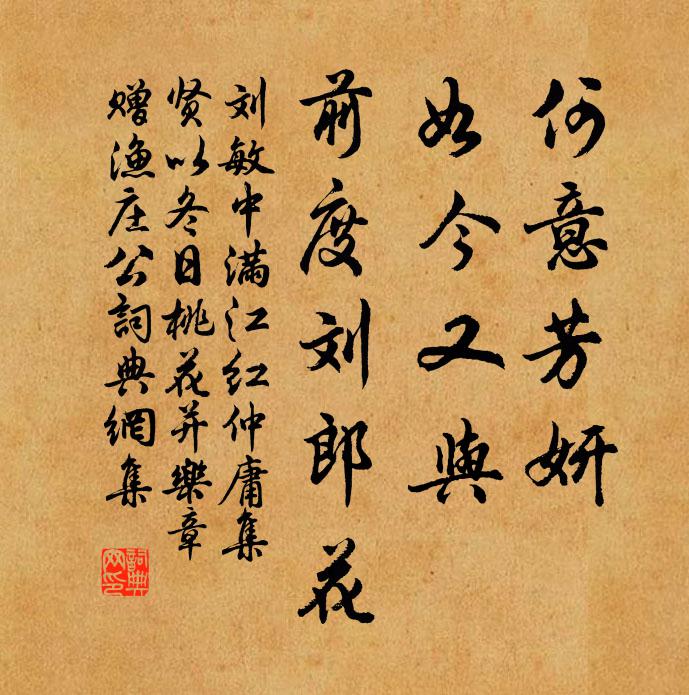 何意芳妍
如今又與
前度刘郎花
刘敏中满江红仲庸集
贤以冬日桃花并樂章
赠渔庄公詞典網集
詞典
网印